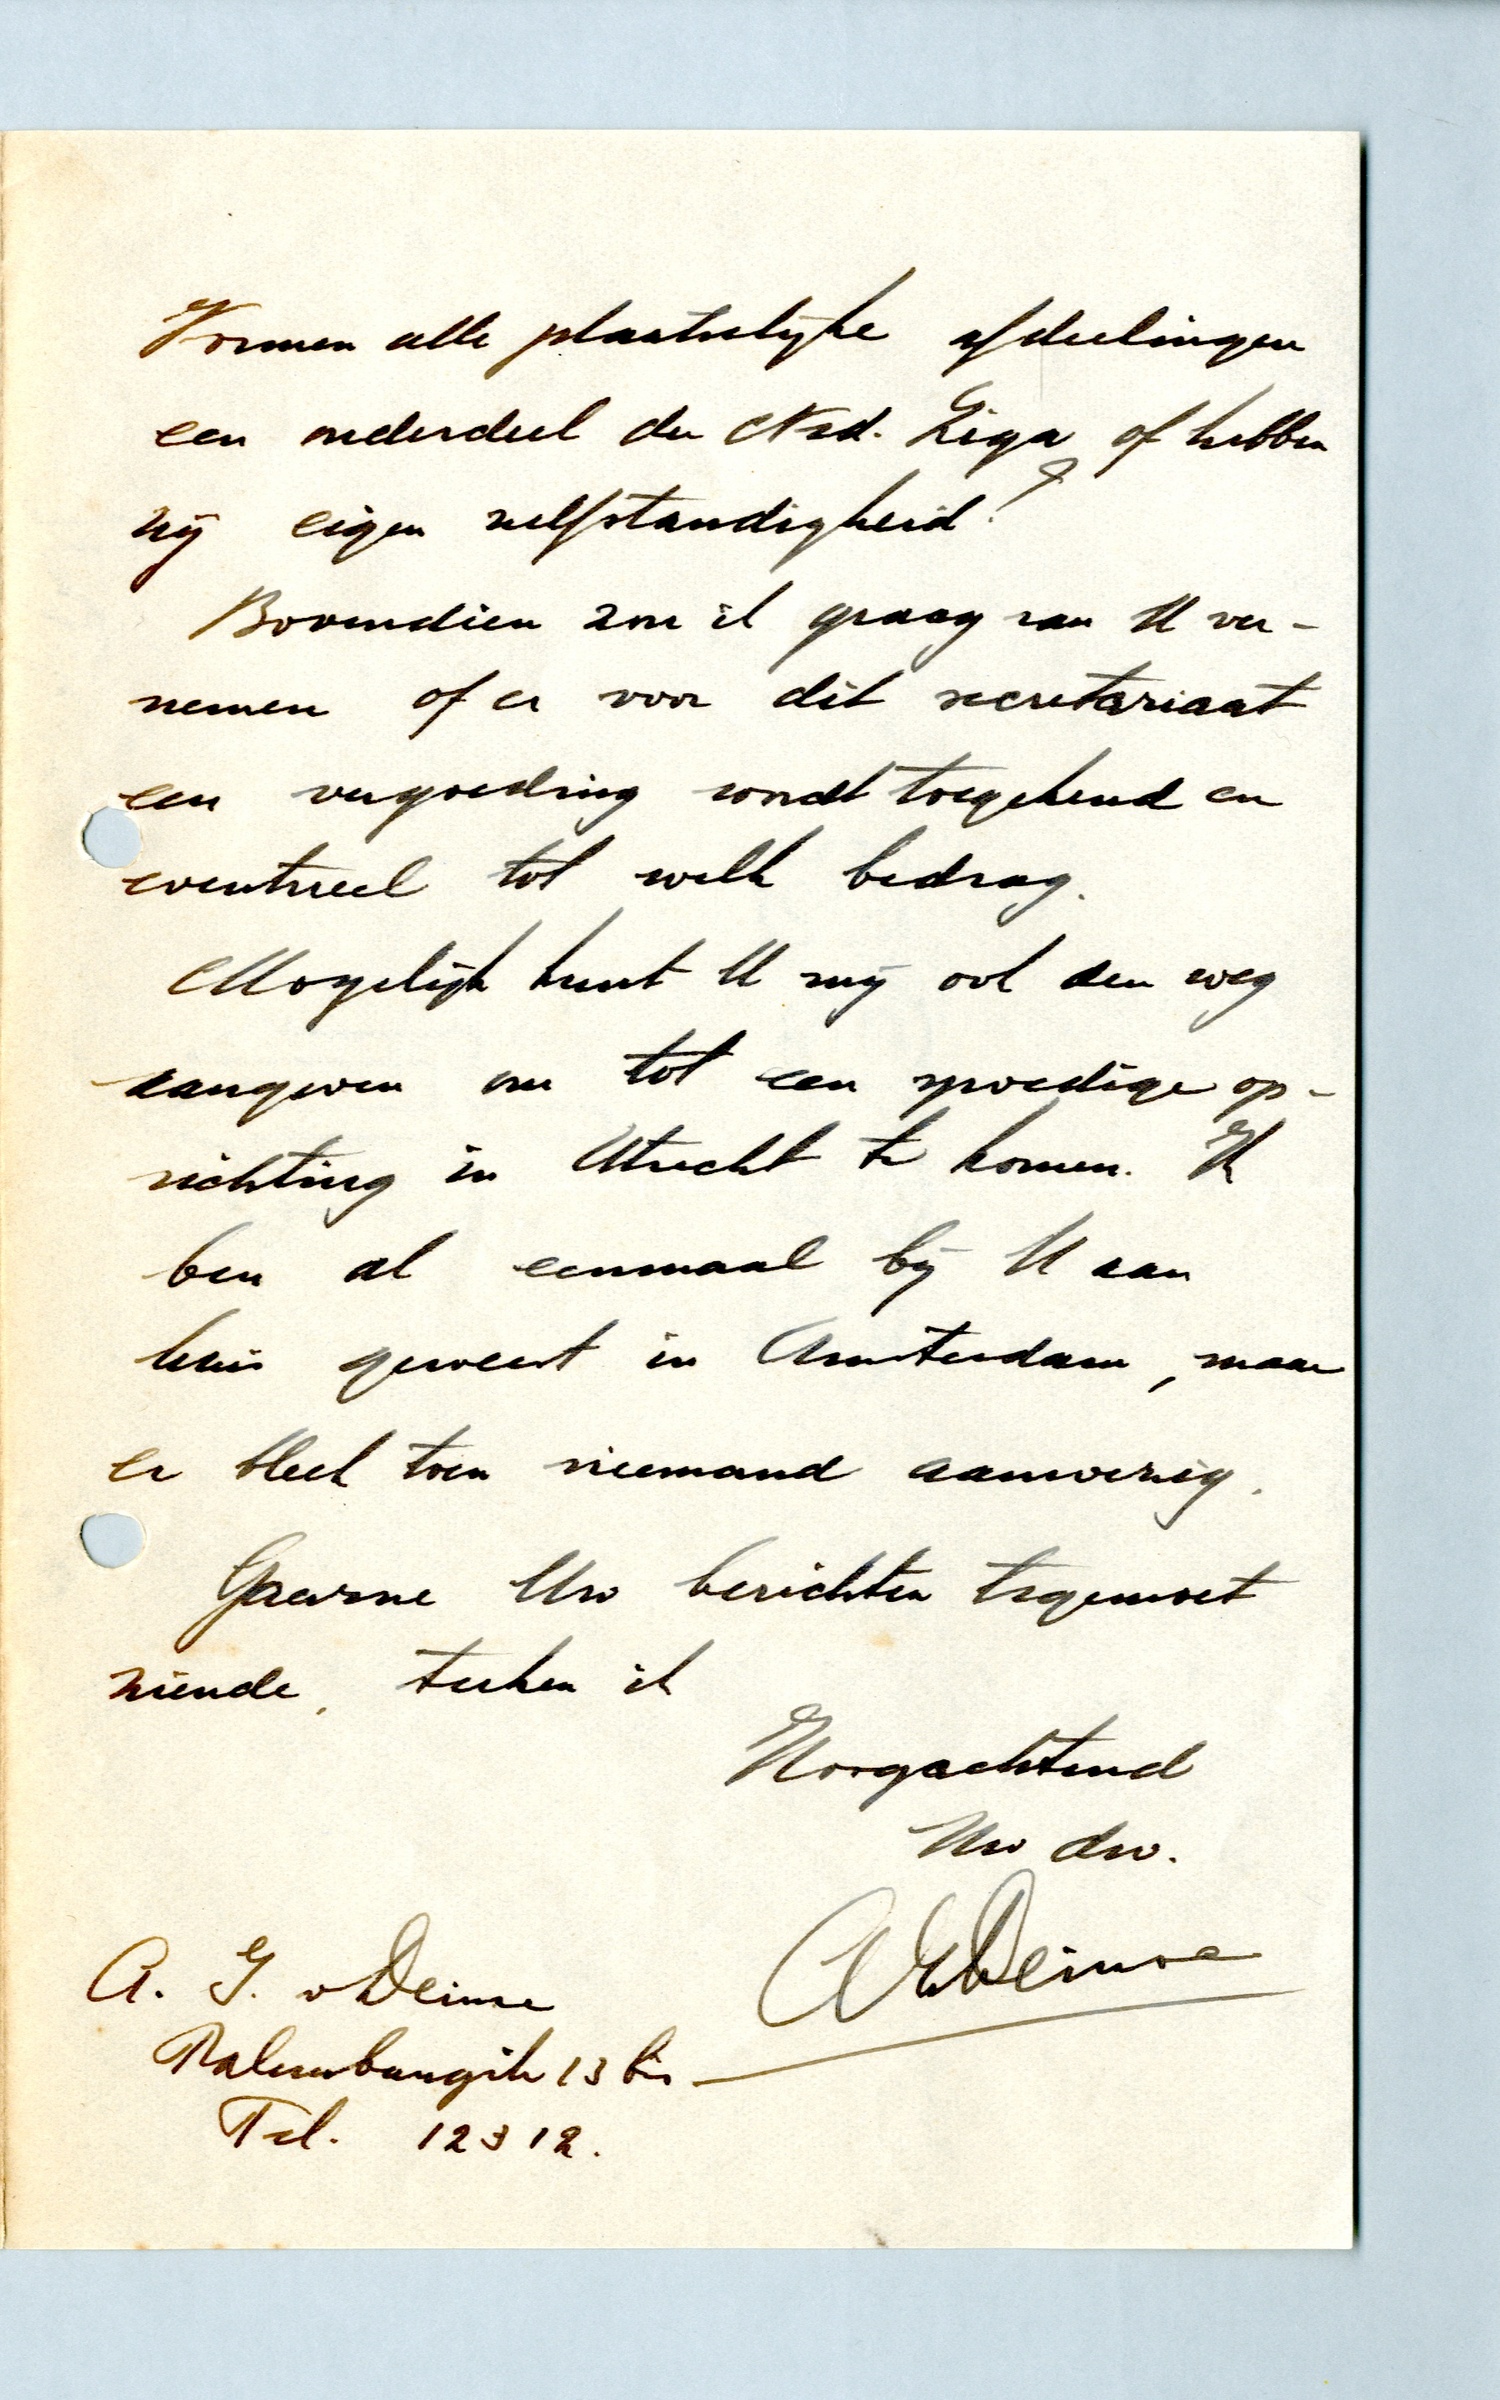 Vormen alle plaatselijke afdeelingen
een onderdeel der Ned. Liga of hebben
zij eigen zelfstandigheid?
Bovendien zou ik graag van U ver-
nemen of er voor dit secretariaat
een vergoeding wordt toegekend en
eventueel tot welk bedrag.
Mogelijk kunt U mij ook den weg
aangeven om tot een spoedige op-
richting in Utrecht te komen. Ik
ben al eenmaal bij U aan
huis geweest in Amsterdam, maar
er bleek toen niemand aanwezig.
Gaarne Uw berichten tegemoet
ziende, teeken ik
Hoogachtend
Uw dw.
A. G. v Deinse
Palembangstr 13 bis
Tel. 12312.